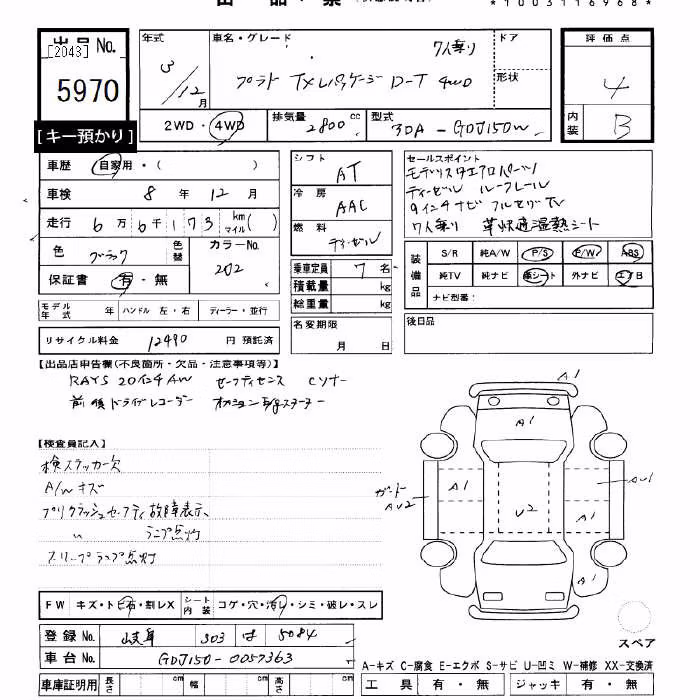 *1003116968*
出品No.
[2043]
5970
[キー預かり]
年式
3/12月
車名・グレード
7人乗り
プラド TXLパッケージ D-T 4WD
ドア
形状
2WD・4WD
排気量 2800 cc
型式 3DA-GDJ150W
評価点
4
内装
B
車歴 自家用・( )
車検 8年12月
走行 6万6千173 km マイル( )
色 ブラック
色替
カラーNo.
202
保証書 有・無
モデル年式 年 ハンドル 左・右 ディーラー・並行
リサイクル料金 12490 円 預託済
シフト
AT
冷房
AAC
燃料
ディーゼル
乗車定員 7名
積載量 kg
総重量 kg
名変期限
月 日
セールスポイント
モデリスタエアロパーツ
ディーゼル ルーフレール
9インチナビ フルセグTV
7人乗り 革快適温熱シート
装備品
S/R 純A/W P/S P/W ABS
純TV 純ナビ 革シート 外ナビ エアB
ナビ型番:
後日品
【出品店申告欄(不良箇所・欠品・注意事項等)】
RAYS 20インチAW セーフティセンス Cソナー
前後ドライブレコーダー オプションEgスターター
【検査員記入】
検ステッカー欠
A/Wキズ
プリクラッシュセーフティ故障表示、
〃 ランプ点灯
スリープランプ点灯
A1
A1
A1
ガード
AU2
U2
A1
AU1
A1
スペア
FW キズ・トビ石・割レX
シート内装 コゲ・穴・汚レ・シミ・破レ・スレ
登録No. 岐阜 303 は 5084
車台No. GDJ150-0057363
車庫証明用 長さ cm 幅 cm 高さ cm
A-キズ C-腐食 E-エクボ S-サビ U-凹ミ W-補修 XX-交換済
工具 有・無 ジャッキ 有・無